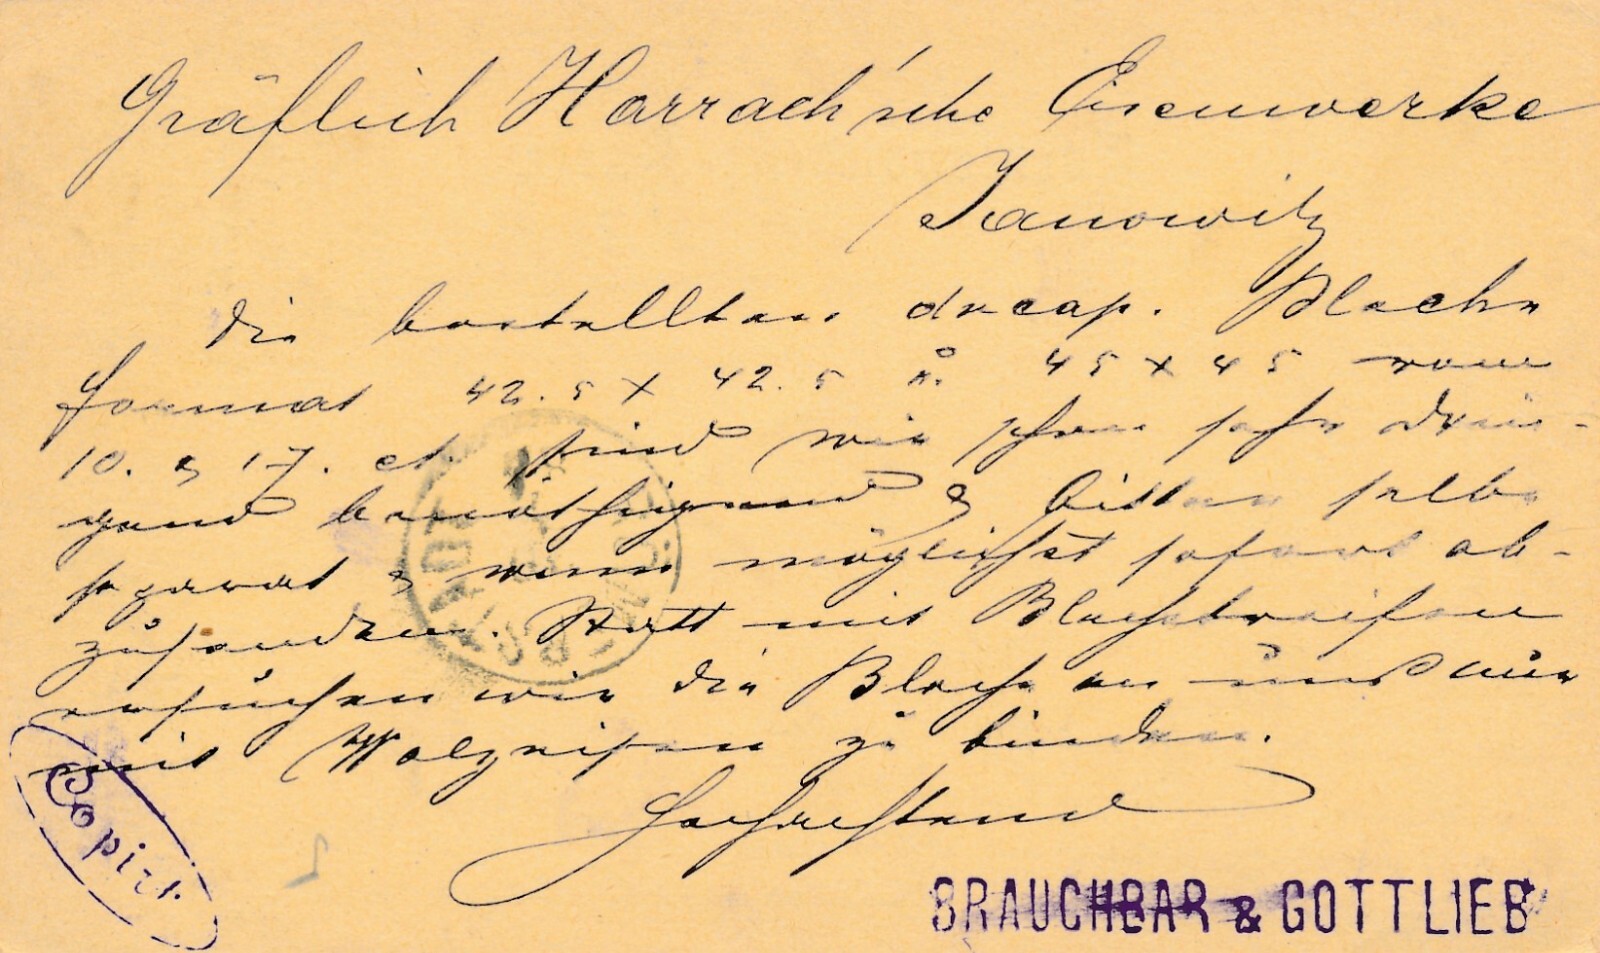 Gräflich Harrach'sche Eisenwerke
Janowitz
Die bestellten decap. Bleche
Format 42.5 x 42.5 & 45 x 45 vom
10. & 17. ct. sind wir schon sehr drin-
gend benöthigend & bitten selbe
separat & wenn möglichst sofort ab-
zusenden. Statt mit Blechstreifen
ersuchen wir die Bleche an uns nur
mit Walzreifen zu binden.
Hochachtend
Copirt.
BRAUCHBAR & GOTTLIEB